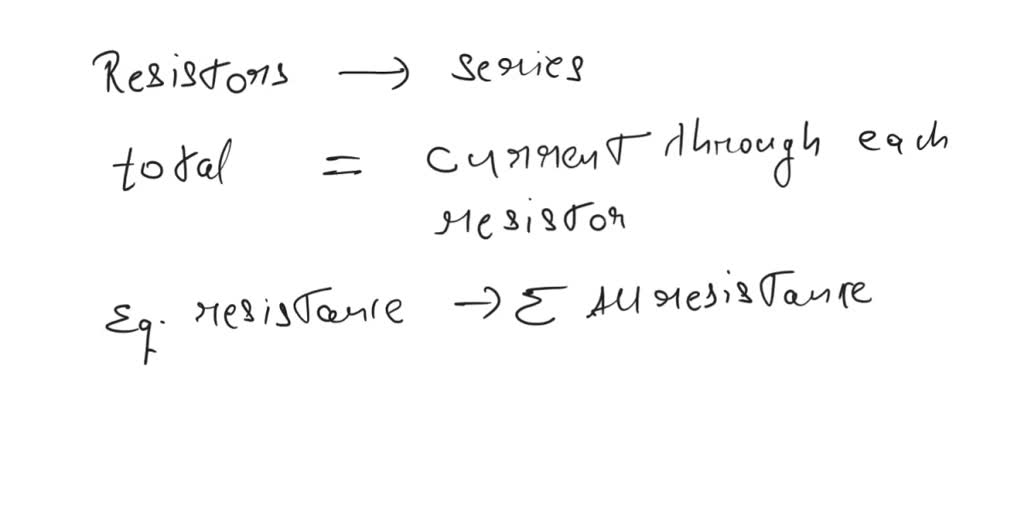 Resistors → series
total = current through each
resistor
Eq. resistance → Σ All resistance